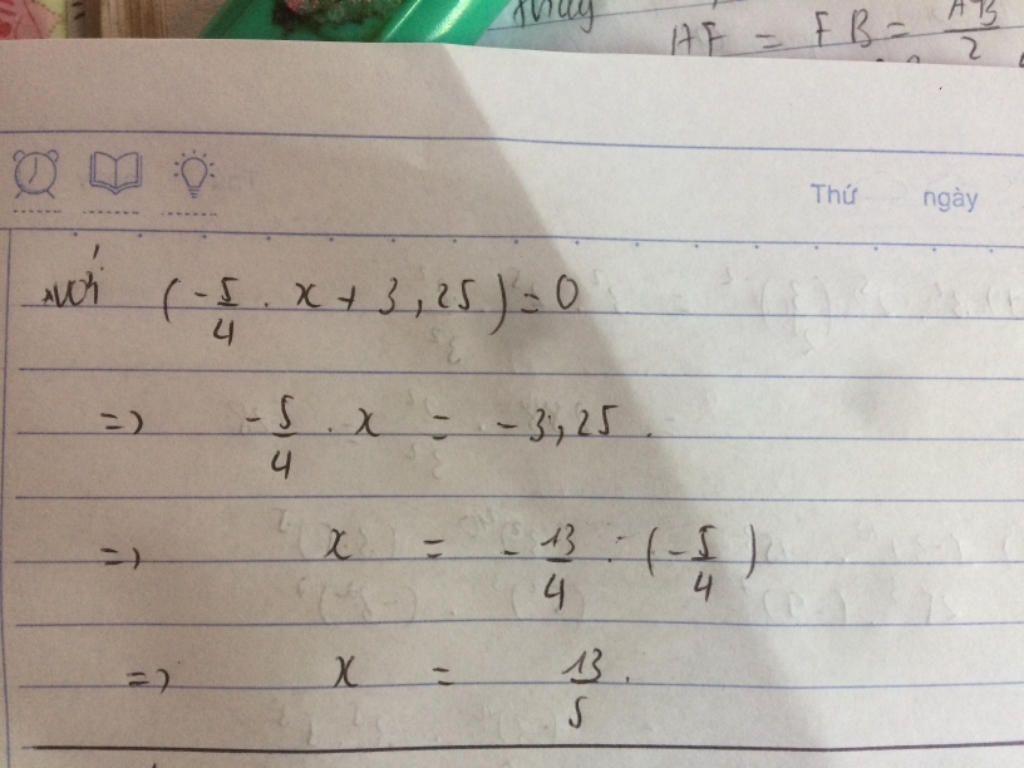 AF = FB = AB/2
Thứ ngày
với (-5/4 . x + 3,25) = 0
=> -5/4 . x = -3,25.
=> x = -13/4 : (-5/4)
=> x = 13/5.